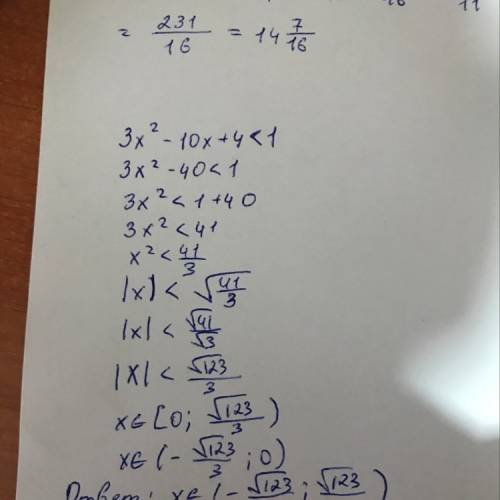 16 11
= 231/16 = 14 7/16
3x² - 10x + 4 < 1
3x² - 40 < 1
3x² < 1 + 40
3x² < 41
x² < 41/3
|x| < √(41/3)
|x| < √41/√3
|x| < √123/3
x ∈ [0; √123/3)
x ∈ (-√123/3; 0)
Ответ: x ∈ (-√123/3; √123/3)